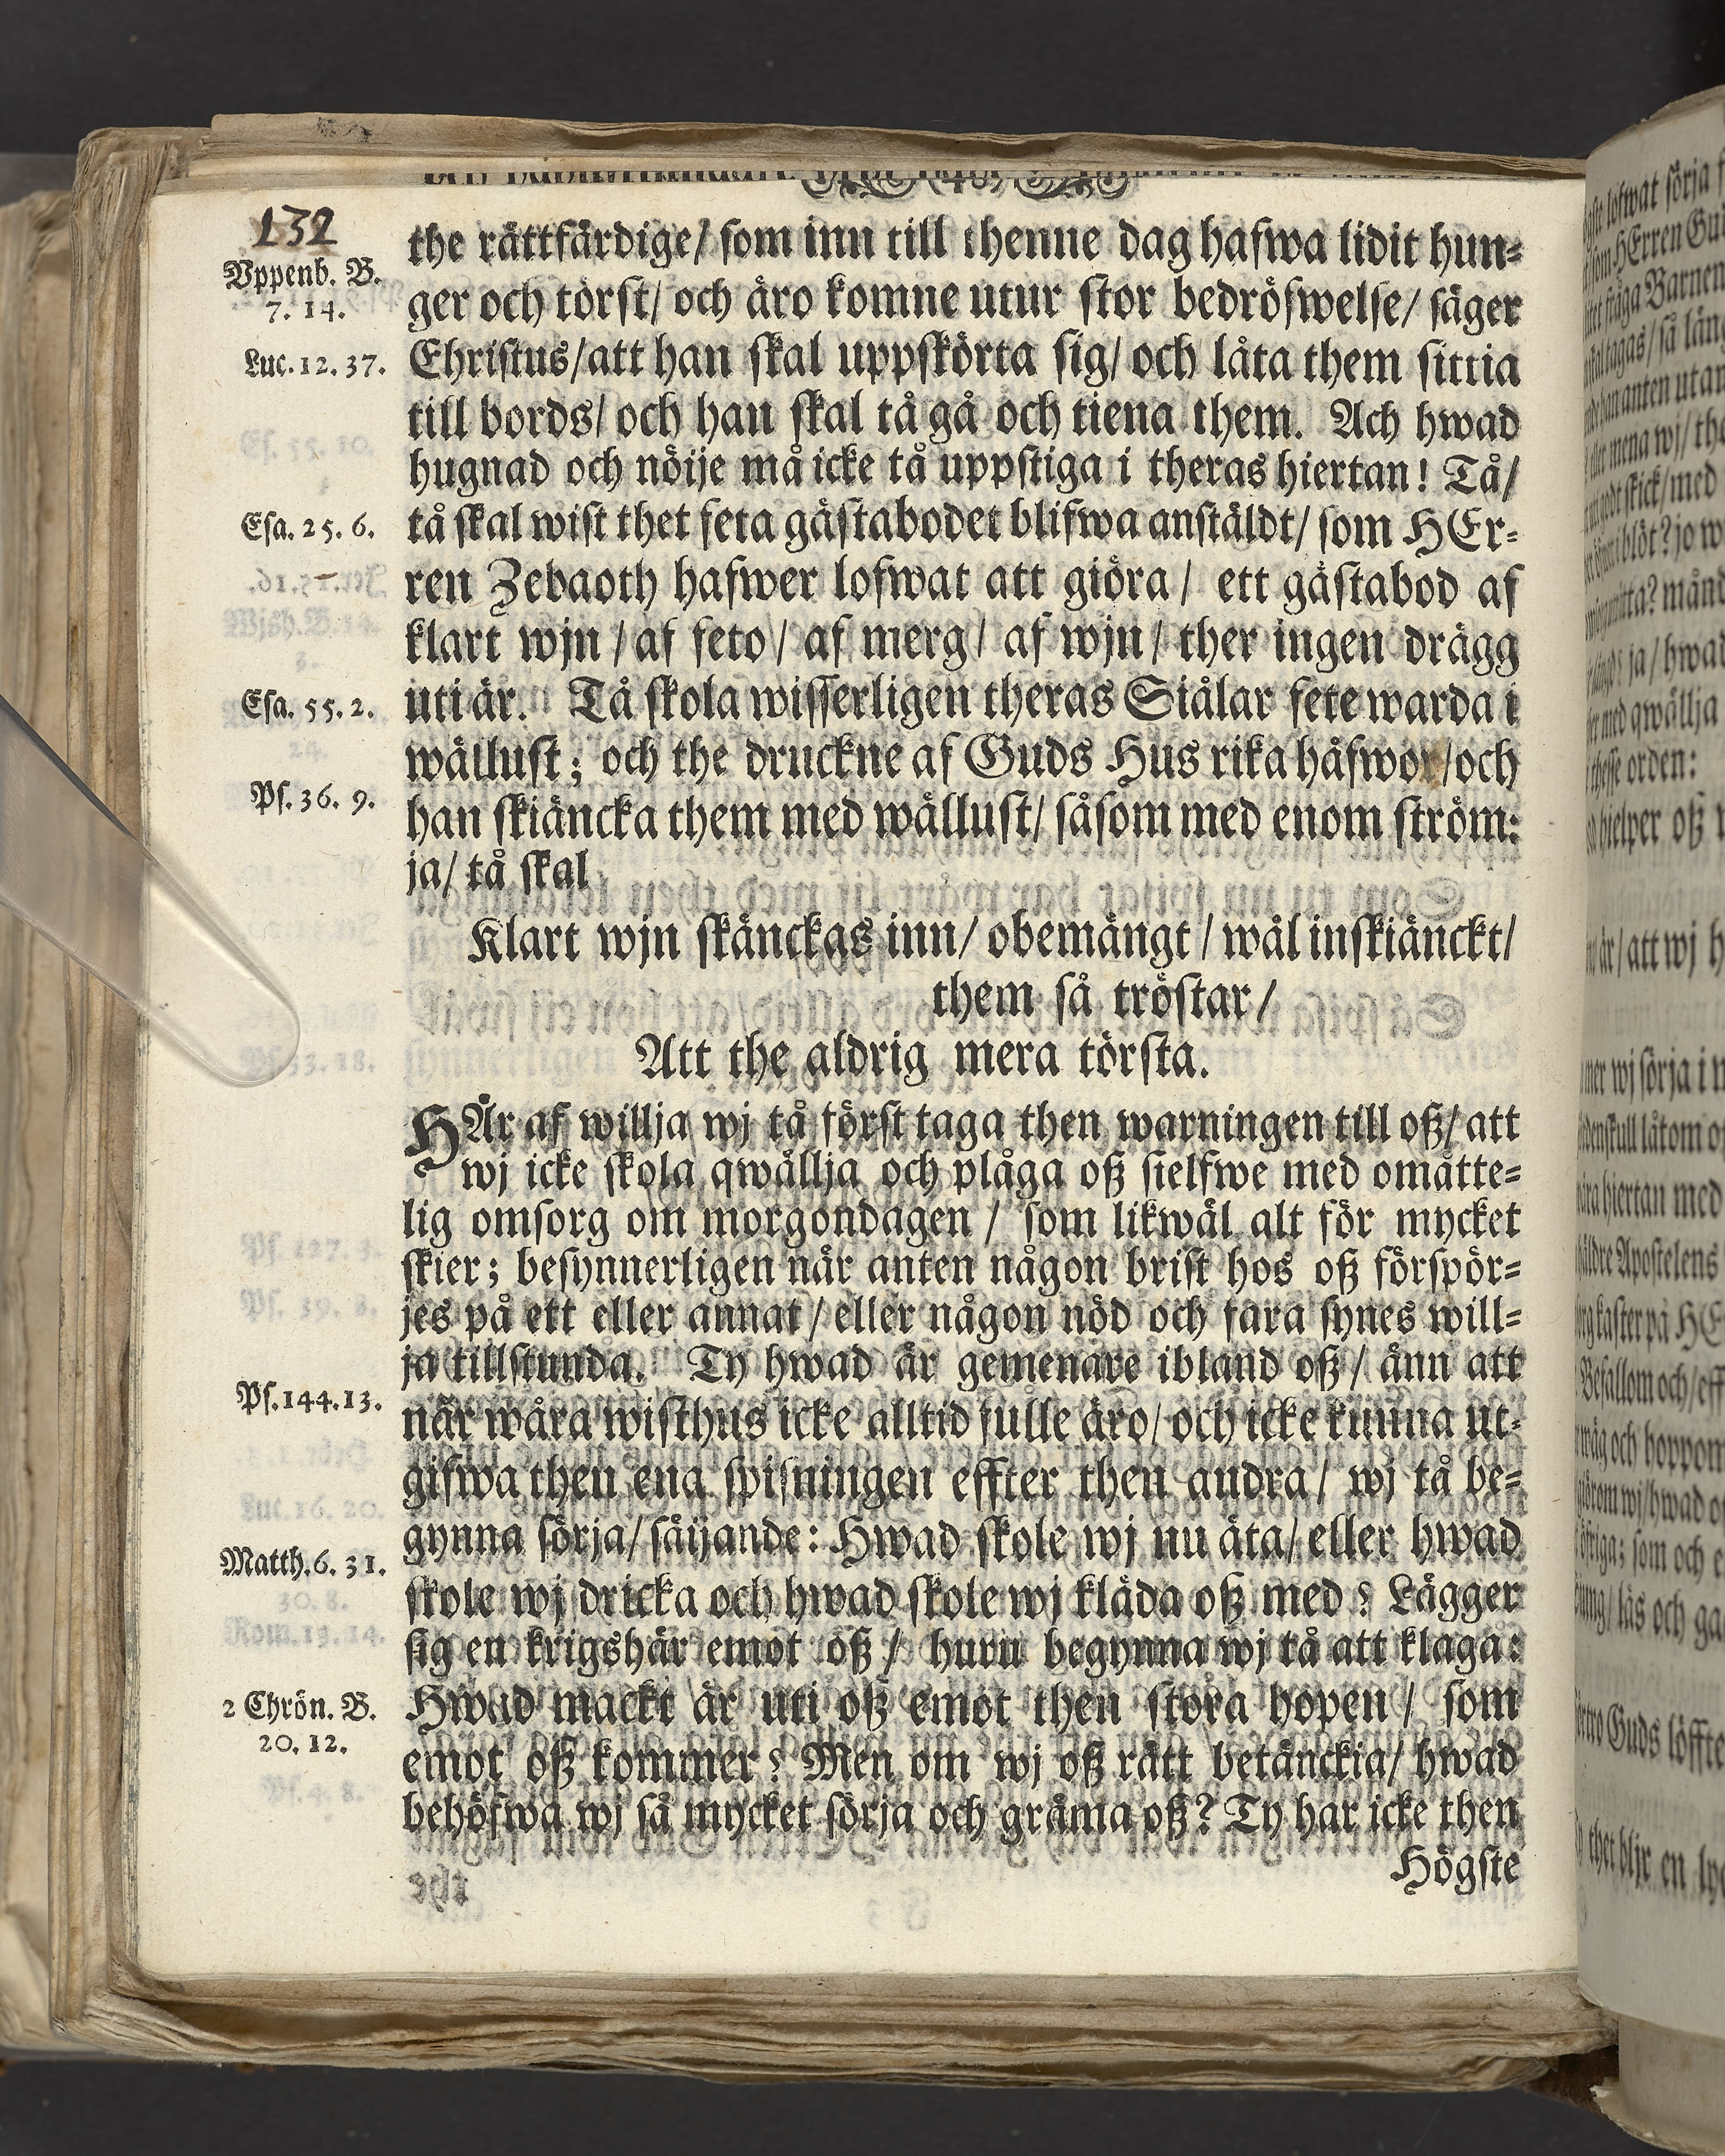 132
the rättfärdige/ som inn till thenne dag hafwa lidit hun-
Uppenb. B.
7. 14.
ger och törst/ och äro komne utur stor bedröfwelse/ säger
Luc. 12. 37.
Christus/ att han skal uppskörta sig/ och låta them sittia
till bords/ och han skal tå gå och tiena them. Ach hwad
hugnad och nöije må icke tå uppstiga i theras hiertan! Tå/
Esa. 25. 6.
tå skal wist thet feta gästabodet blifwa anstäldt/ som HEr-
ren Zebaoth hafwer lofwat att giöra/ ett gästabod af
klart wjn/ af feto/ af merg/ af wjn/ ther ingen drägg
Esa. 55. 2.
uti är. Tå skola wisserligen theras Siälar fete warda i
wällust; och the druckne af Guds Hus rika håfwor/ och
Ps. 36. 9.
han skiäncka them med wällust/ såsom med enom ström:
ja/ tå skal
Klart wjn skänckas inn/ obemängt/ wäl inskiänckt/
them så tröstar/
Att the aldrig mera törsta.
HÄr af willja wj tå först taga then warningen till oß/ att
wj icke skola qwällja och plåga oß sielfwe med omåtte-
lig omsorg om morgondagen/ som likwäl alt för mycket
skier; besynnerligen när anten någon brist hos oß förspör-
jes på ett eller annat/ eller någon nöd och fara synes will-
ja tillstunda. Ty hwad är gemenare ibland oß/ änn att
Ps. 144. 13.
när wåra wisthus icke alltid fulle äro/ och icke kunna ut-
gifwa then ena spisningen effter then andra/ wj tå be-
gynna sörja/ säijande: Hwad skole wj nu äta/ eller hwad
Matth. 6. 31.
skole wj dricka och hwad skole wj kläda oß med? Lägger
sig en krigshär emot oß/ huru begynna wj tå att klaga:
2 Chrön. B.
20. 12.
Hwad mackt är uti oß emot then stora hopen/ som
emot oß kommer? Men om wj oß rätt betänckia/ hwad
behöfwa wj så mycket sörja och gräma oß? Ty har icke then
Högste